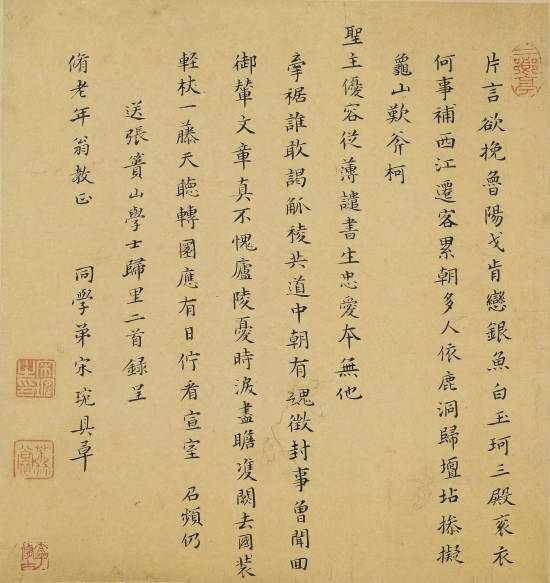 片言欲挽魯陽戈肯戀銀魚白玉珂三殿袞衣
何事補西江遷客累朝多人依鹿洞歸壇坫操擬
龜山歎斧柯
聖主優容從薄譴書生忠愛本無他
牽裾誰敢謁觚稜共道中朝有魏徵封事曾聞回
御輦文章真不愧廬陵憂時淚盡瞻雙闕去國裝
輕杖一藤天聽轉圜應有日佇看宣室 召頻仍
送張簣山學士歸里二首錄呈
脩老年翁教正 同學弟宋琬具草
宋琬之印
荔裳